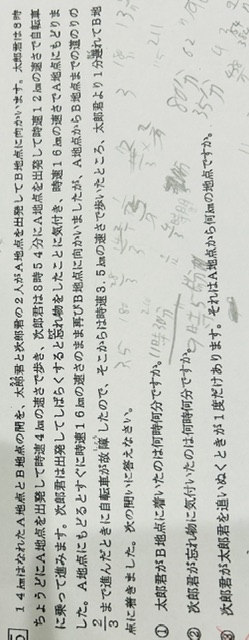 5 14kmはなれたA地点とB地点の間を、太郎君と次郎君の2人がA地点を出発してB地点に向かいます。太郎君は8時
ちょうどにA地点を出発して時速4kmの速さで歩き、次郎君は8時54分にA地点を出発して時速12kmの速さで自転車
に乗って進みます。次郎君は出発してしばらくすると忘れ物をしたことに気付き、時速16kmの速さでA地点にもどりま
した。A地点にもどるとすぐに時速16kmの速さのまま再びB地点に向かいましたが、A地点からB地点までの道のりの
2/3まで進んだときに自転車が故障したので、そこからは時速3.5kmの速さで歩いたところ、太郎君より1分遅れてB地
点に着きました。次の問いに答えなさい。
① 太郎君がB地点に着いたのは何時何分ですか。
② 次郎君が忘れ物に気付いたのは何時何分ですか。
③ 次郎君が太郎君を追いぬくときが1度だけあります。それはA地点から何kmの地点ですか。